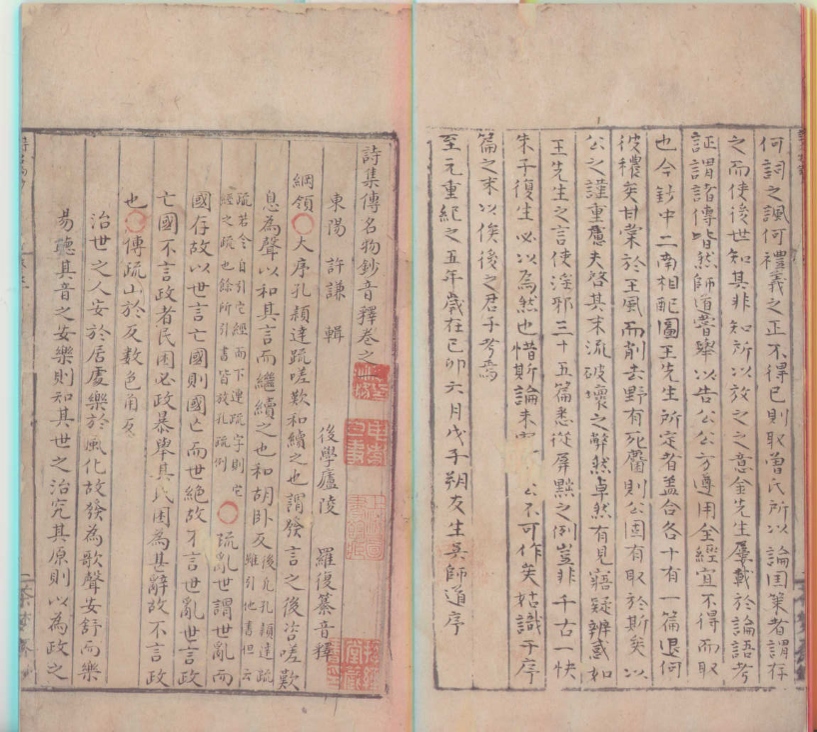 何詞之諷何禮義之正不得已則取曾氏所以論国策者謂存
之而使後世知其非知所以放之之意金先生屢載於論語考
証謂諸傳皆然師道嘗舉以告公公方遵用全經宜不得而取
也今鈔中二南相配圖王先生所定者盖合各十有一篇退何
彼穠矣甘棠於王風而削去野有死麕則公固有取於斯矣以
公之謹重慮夫啓其末流破壞之辨然卓然有見寤疑辨惑如
王先生之言使淫邪三十五篇悉從屏黜之例豈非千古一快
朱子復生必以為然也惜斯論未 公不可作矣姑識于序
篇之末以俟後之君子考焉
至元重紀之五年歲在己卯六月戊子朔友生吳師道序
詩集傳名物鈔音釋卷之
東陽 許謙 輯 後學廬陵 羅復纂音釋
綱領○大序孔頴達疏嗟歎和續之也謂發言之後咨嗟歎
息為聲以和其言而繼續之也和胡卧反後凡孔頴達疏雖引他書但云
疏若全自引它經而下連疏字則它經之疏也餘所引書皆放孔疏例○疏乱世謂世亂而
國存故以世言亡國則國亡而世絶故不言世亂世言政
亡國不言政者民困必政暴舉其民困為甚辭故不言政
也○傳疏山於反数色角反
治世之人安於居處樂於風化故發為歌聲安舒而樂
易聴其音之安樂則知其世之治究其原則以為政之